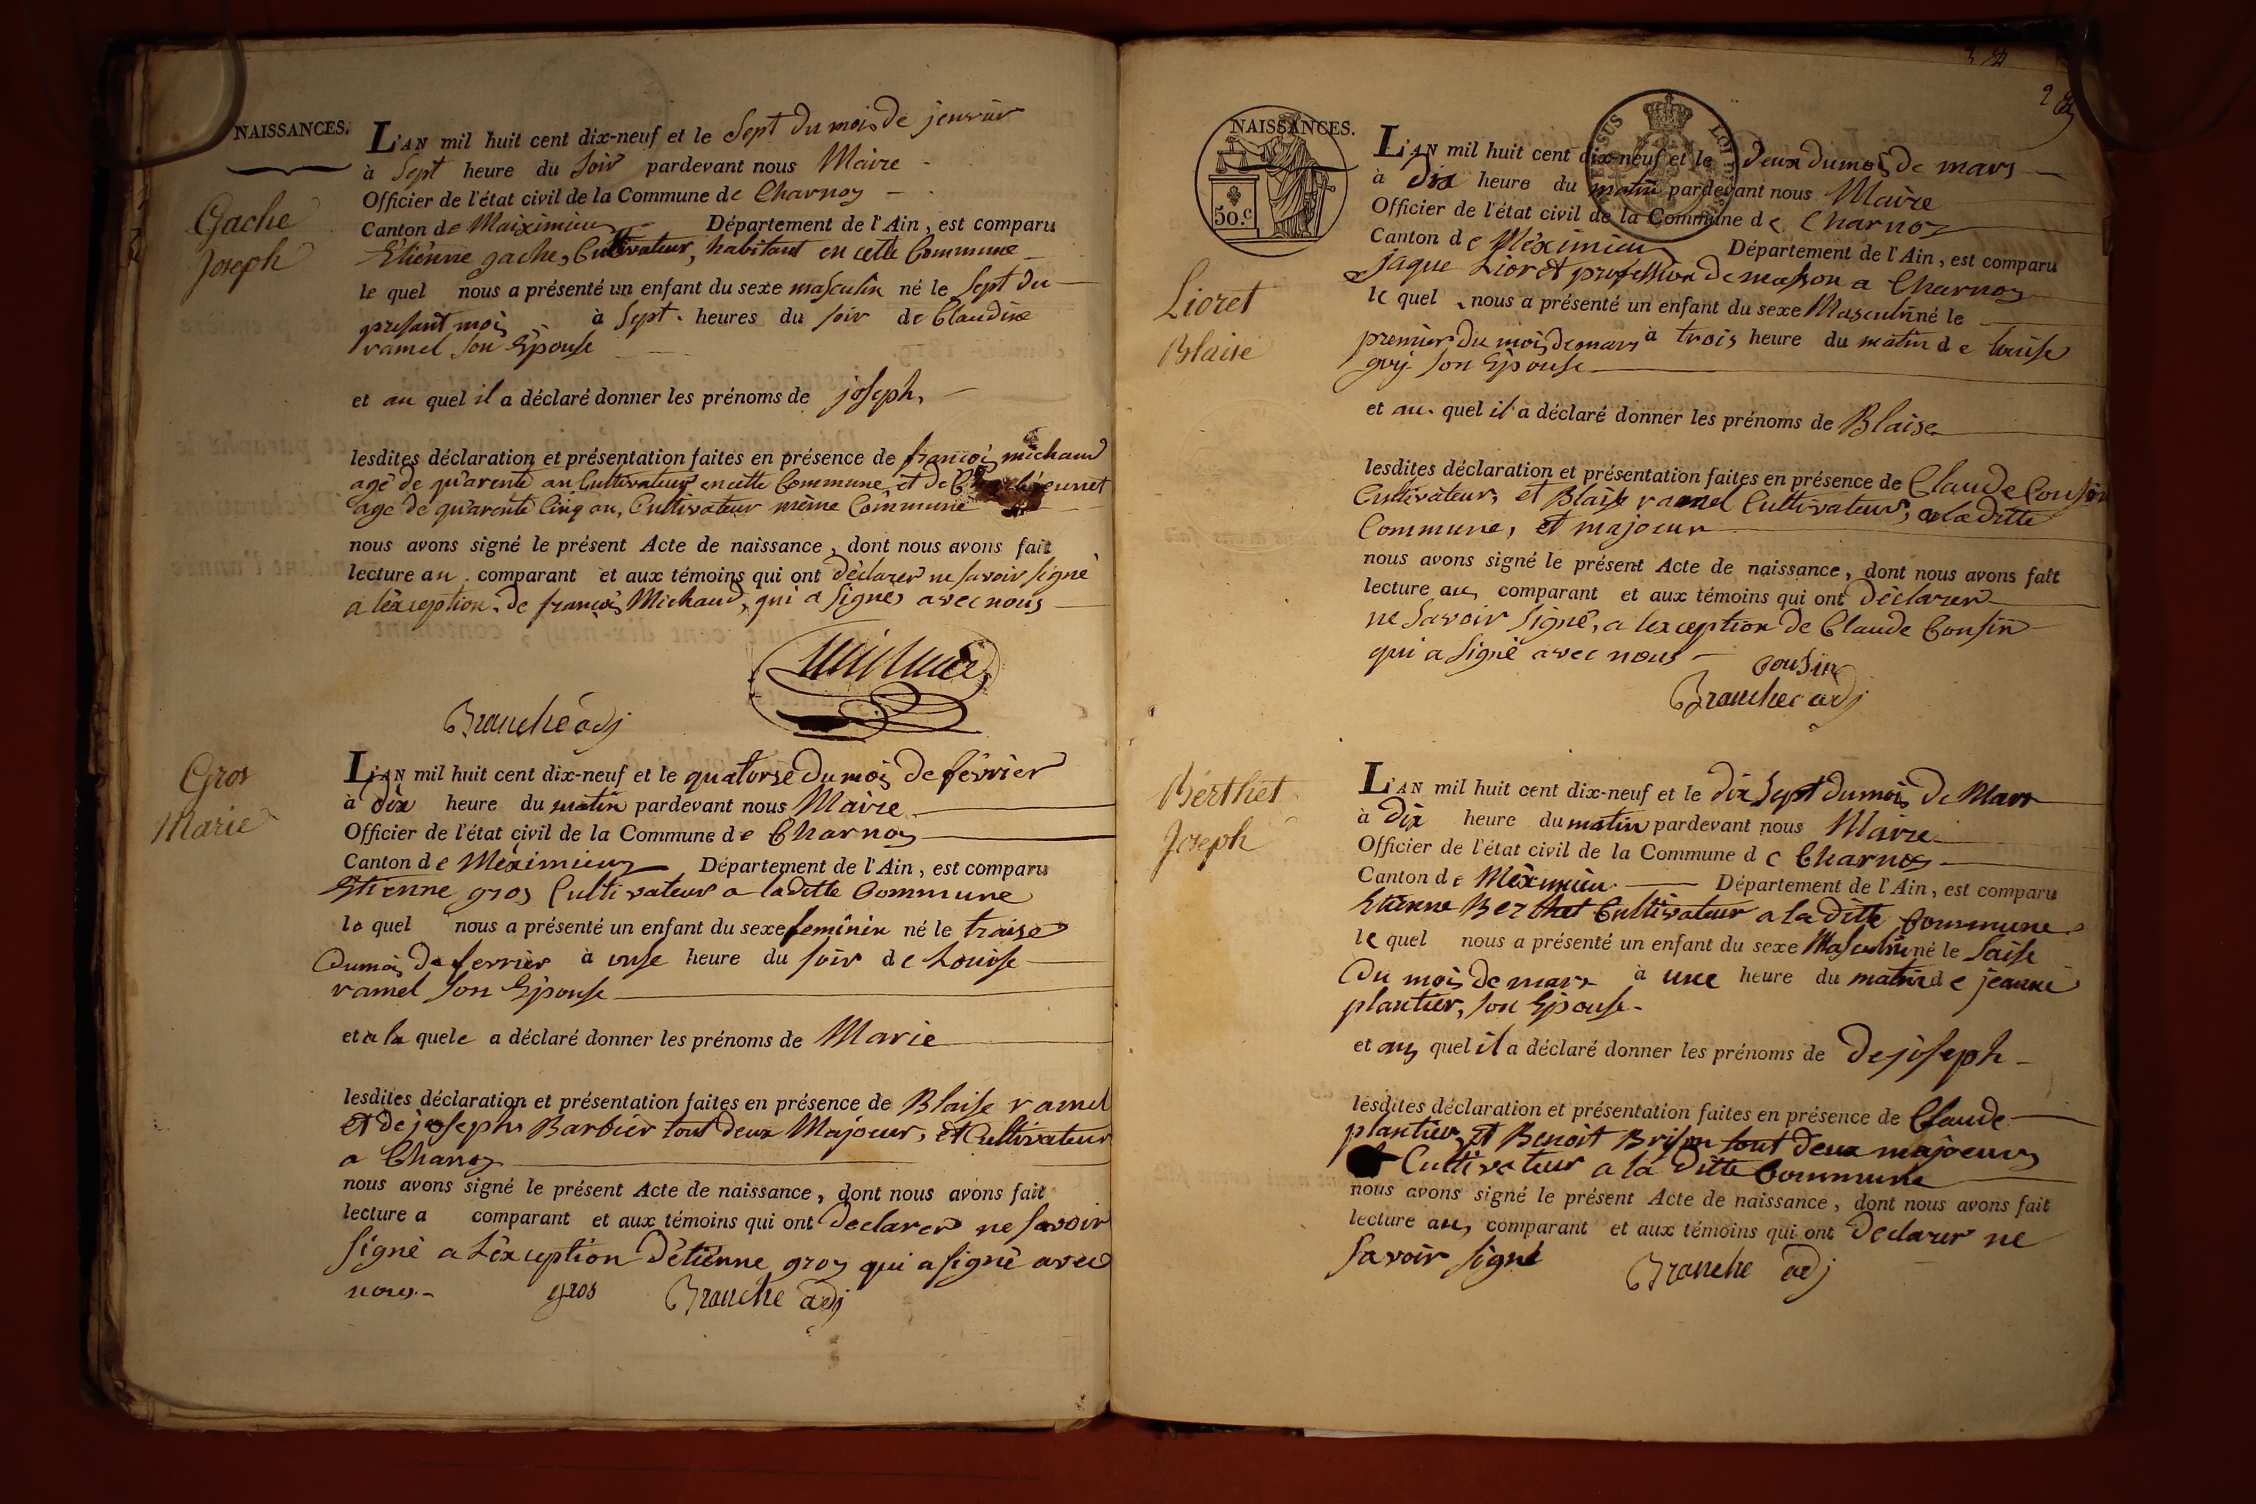 NAISSANCES.
Gache
Joseph
L'AN mil huit cent dix-neuf et le Sept du mois de jenvier
à Sept heure du Soir pardevant nous Maire
Officier de l'état civil de la Commune de Charnoz
Canton de Maiximieu Département de l'Ain, est comparu
Etiénne gache, Cultivateur, habitant en cette Commune
le quel nous a présenté un enfant du sexe masculin né le Sept du
presant mois à Sept heures du soir de Claudine
ramel son Epouse
et au quel il a déclaré donner les prénoms de joseph,
lesdites déclaration et présentation faites en présence de françois michaud
agé de quarente an Cultivateur en cette Commune et de
age de quarente Cinq an, Cultivateur même Commune
nous avons signé le présent Acte de naissance, dont nous avons fait
lecture au comparant et aux témoins qui ont déclarer ne savoir signé
a léxception de françois Michaud, qui a Signer avec nous
Branche adj
Gros
Marie
L'AN mil huit cent dix-neuf et le quatorse du mois de février
à dix heure du matin pardevant nous Maire
Officier de l'état civil de la Commune de Charnoz
Canton de Méximieuz Département de l'Ain, est comparu
Etienne gros Cultivateur a la ditte Commune
le quel nous a présenté un enfant du sexe feminin né le traise
du mois de fevrier à onse heure du soir de Louise
ramel son Epouse
et a la quele a déclaré donner les prénoms de Marie
lesdites déclaration et présentation faites en présence de Blaise ramel
et de joseph Barbier tout deux Majeurs, et Cultivateur
a Charnoz
nous avons signé le présent Acte de naissance, dont nous avons fait
lecture a comparant et aux témoins qui ont declarer ne savoir
signé a Léxception d'étiénne gros qui a signé avec
nous gros Branche adj
NAISSANCES.
50.c
Lioret
Blaise
L'AN mil huit cent dix-neuf et le deux du mois de mars
à dix heure du matin pardevant nous Maire
Officier de l'état civil de la Commune de Charnoz
Canton de Méximieu Département de l'Ain, est comparu
jaque Lioret profession de masson a Charnoz
le quel nous a présenté un enfant du sexe Masculin né le
premier du mois de mars à trois heure du matin de louise
guy son Epouse
et au quel il a déclaré donner les prénoms de Blaise
lesdites déclaration et présentation faites en présence de Claude Cousin
Cultivateur, et Blaise ramel Cultivateur, a la ditte
Commune, et majeur
nous avons signé le présent Acte de naissance, dont nous avons fait
lecture au comparant et aux témoins qui ont déclarer
ne Savoir Signé, a lexception de Claude Cousin
qui a signé avec nous cousin
Branche adj
Bérthet
Joseph
L'AN mil huit cent dix-neuf et le dix Sept du mois de Mars
à dix heure du matin pardevant nous Maire
Officier de l'état civil de la Commune de Charnoz
Canton de Méximieu Département de l'Ain, est comparu
Etienne Berthet Cultivateur a la ditte Commune
le quel nous a présenté un enfant du sexe Masculin né le Saise
du mois de mars à une heure du matin de jeanne
plantier, son Epouse
et au quel il a déclaré donner les prénoms de de joseph
lesdites déclaration et présentation faites en présence de Claude
plantier, et Benoit Brison tout deux majeurs
Cultivateur a la ditte Commune
nous avons signé le présent Acte de naissance, dont nous avons fait
lecture au comparant et aux témoins qui ont declarer ne
savoir signé Branche adj